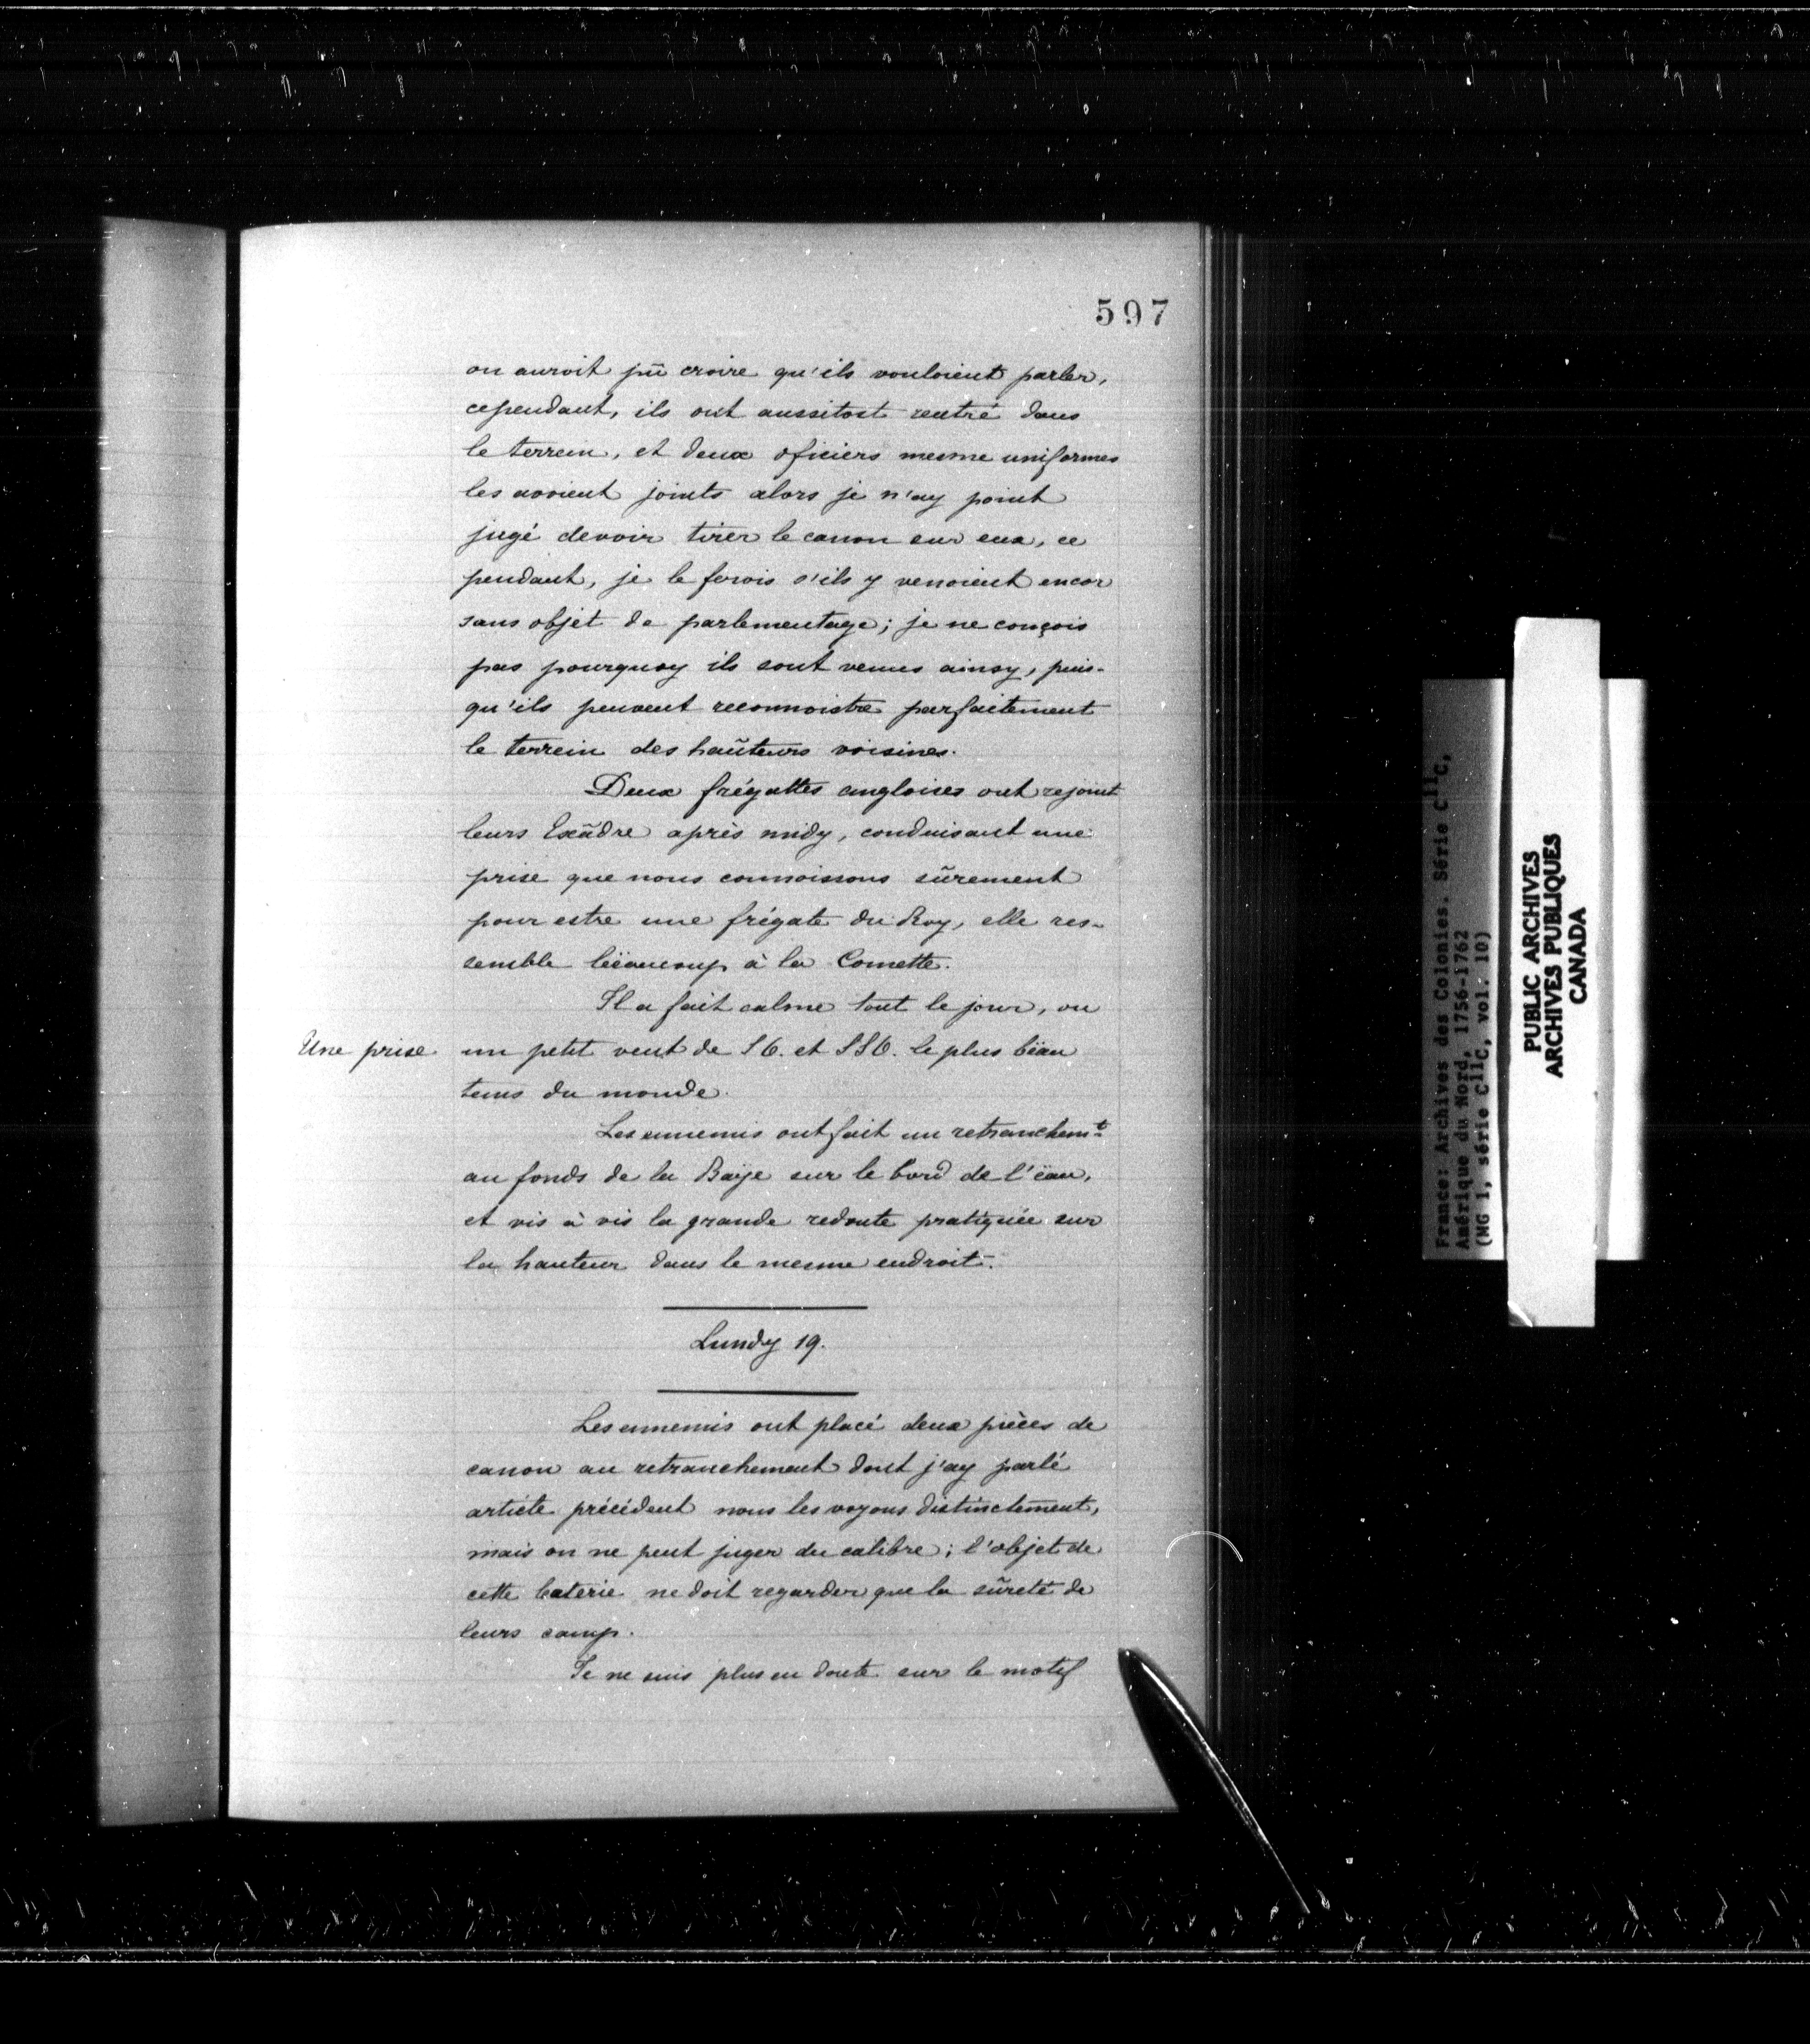 597
on auroit pū croire qu'ils vouloient parler,
cependant, ils ont aussitost rentré dans
le terrein, et deux oficiers mesme uniformes
les avoient joints alors je n'ay point
jugé devoir tirer le canon sur eux, ce
pendant, je le ferois s'ils y venoient encor
sans objet de parlementage; je ne conçois
pas pourquoy ils sont venus ainsy, puis-
qu'ils peuvent reconnoistre parfaitement
le terrein des haūteurs voisines.
Deux frégattes angloises ont rejoint
leurs Escādre après midy, conduisant une
prise que nous connoissons sūrement
pour estre une frégate du Roy, elle res-
semble bëaucoup à la Comette.
Il a fait calme tout le jour, ou
Une prise un petit vent de SO. et SSO. le plus bëau
tems du monde.
Les ennemis ont fait un retranchemt
au fonds de la Baÿe sur le bord de l'ëau,
et vis à vis la grande redoute pratiquée sur
la hauteur dans le mesme endroit.
Lundy 19.
Les ennemis ont placé deux pièces de
canon au retranchement dont j'ay parlé
article précédent nous les voyons distinctement,
mais on ne peut juger du calibre; l'objet de
cette baterie ne doit regarder que la sūreté de
leurs camp.
Je ne suis plus en doute sur le motif
France: Archives des Colonies. Série C11C,
Amérique du Nord, 1756-1762
(MG 1, série C11C, vol. 10)
PUBLIC ARCHIVES
ARCHIVES PUBLIQUES
CANADA